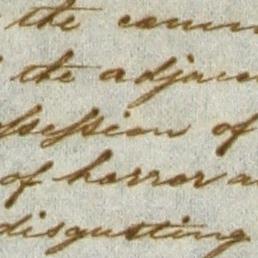 the comm
the adjace
ssession of
of horror a
disgusting